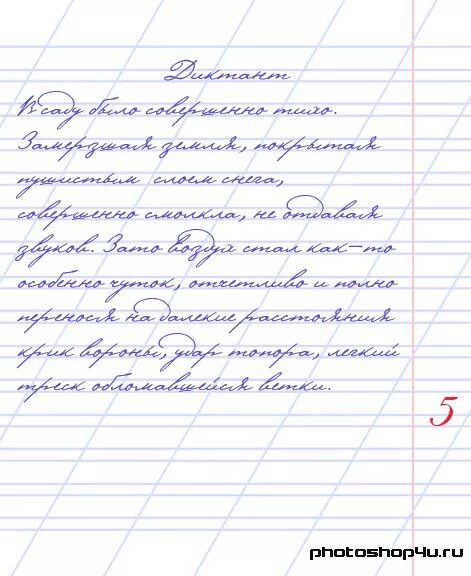 Диктант
В саду было совершенно тихо.
Замерзшая земля, покрытая
пушистым слоем снега,
совершенно смолкла, не отдавая
звуков. Зато воздух стал как-то
особенно чуток, отчетливо и полно
перенося на далекие расстояния
крик вороны, удар топора, легкий
треск обломавшейся ветки.
5
photoshop4u.ru